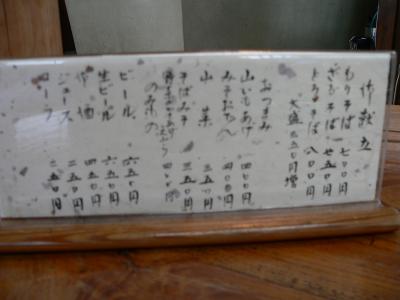 御献立
もりそば 七〇〇円
ざるそば 七五〇円
とろそば 八〇〇円
おつまみ
山いもあげ 四〇〇円
みそおでん 四〇〇円
山菜 三五〇円
そばみそ 三五〇円
四〇〇円
のみもの
ビール 六五〇円
生ビール 六五〇円
酒 四五〇円
ジュース 二五〇円
コーラ 二五〇円